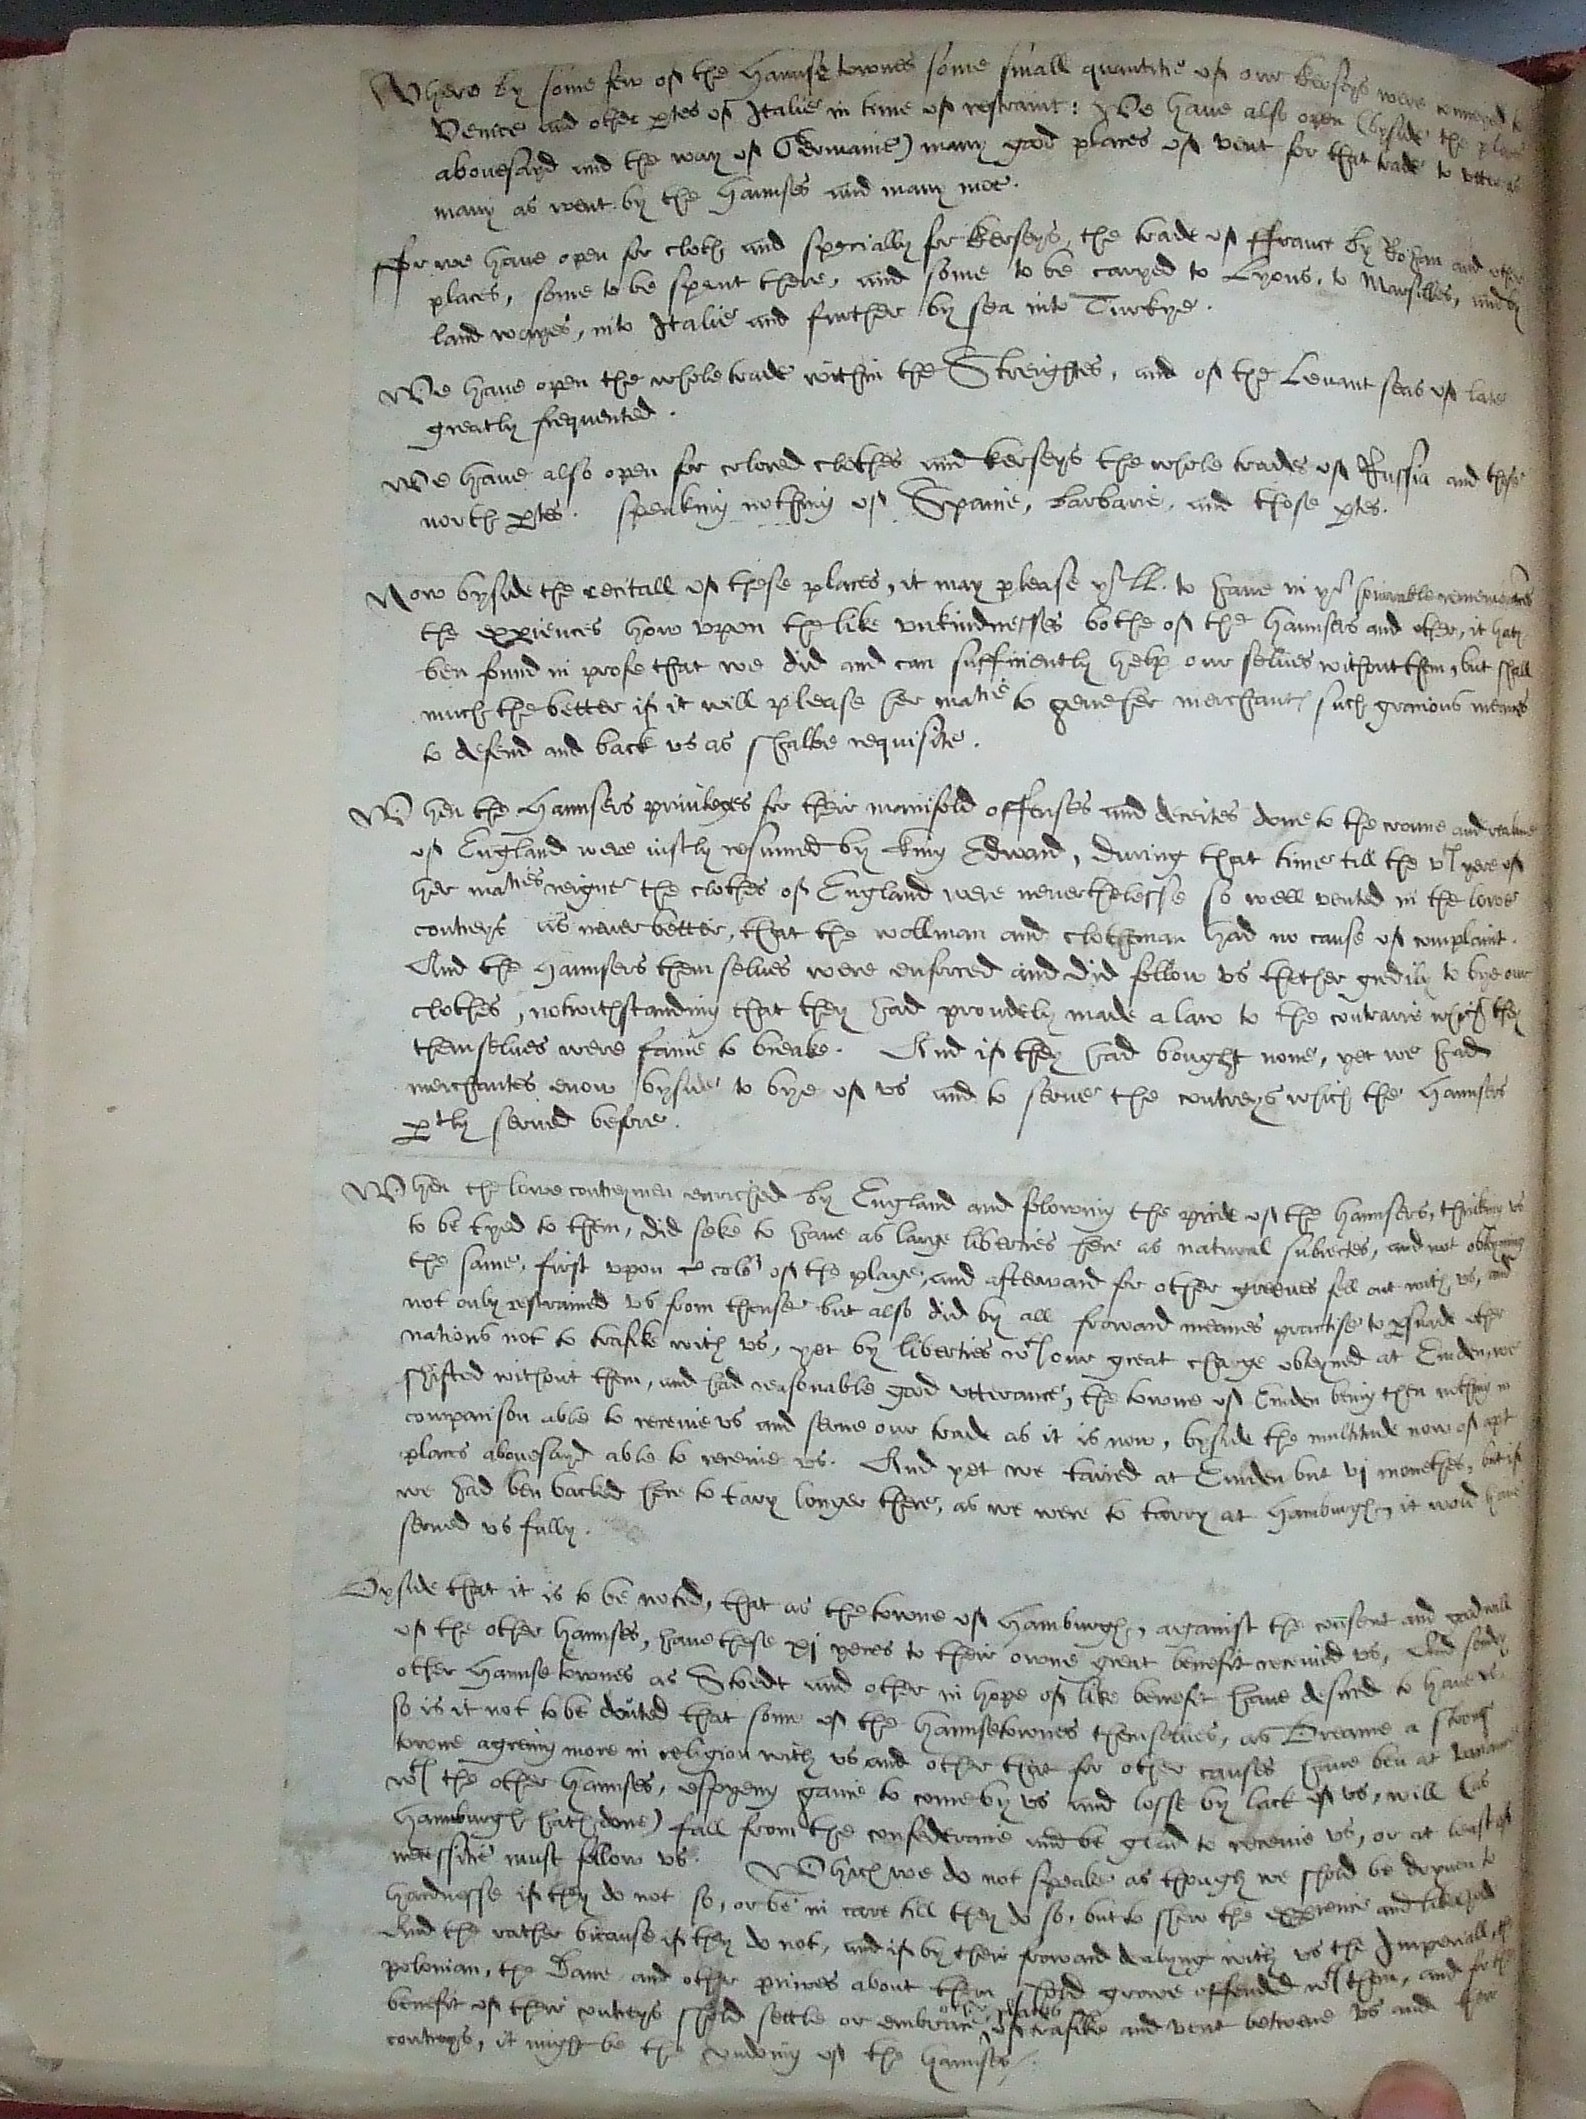 Where by some few of the Haunse townes some small quantitie of our kerseys were conveyed to
Venice and other ptes of Italie in time of restraint: We have also open (byside the places
abouesayd and the way of Germanie) many good places of vent for that trade to utter as
many as went by the Haunses and many moe.
ffor we haue open for cloth and specially for kerseys, the trade of ffrance by Rohan and other
places, some to be spent there, and some to be caryed to Lyons, to Marsilles, and by
land wayes, into Italie and further by sea into Turkye.
We haue open the whole trade within the Streightes, and of the Leuant seas of late
greatly frequented.
We haue also open for colored clothes and kerseys the whole trades of Russia and those
north ptes. Speaking nothing of Spaine, Barbarie, and those ptes.
Now byside the recitall of these places, it may please yr LL. to haue in yr honorable remembrance
the expiences how vpon the like vnkindnesses bothe of the Haunsers and other, it hath
ben found in profe that we did and can sufficiently help our selues without them, but shall
much the better if it will please her matie to geue her merchants such gracious meanes
to defend and back vs as shalbe requisite.
When the Haunsers priuileges for their manifold offenses and deceites done to the crowne and realme
of England were iustly resumed by King Edward, during that time till the vth yere of
her maties reigne the clothes of England were neuerthelesse so well vented in the lowe
contreys as neuer better, that the wollman and clothman had no cause of complaint.
And the Haunsers them selues were enforced and did follow vs thether gredily to bye our
clothes, notwithstanding that they had proudely made a law to the contrarie which they
themselues were faine to breake. And if they had bought none, yet we had
merchantes enow byside to bye of vs and to serue the contreys which the Haunsers
ptly serued before.
When the lowe contreymen enriched by England and folowing the pride of the Haunsers, thinking vs
to be tyed to them, did seke to haue as large liberties here as natural subiectes, and not obteyning
the same, first vpon colo of the plage, and afterward for other greeues fell out with vs, and
not only restrained vs from thense but also did by all froward meanes practise to psuade other
nations not to trafike with vs, yet by liberties wth our great charge obteyned at Emden, we
shifted without them, and had reasonable good vtterance, the towne of Emden being then nothing in
comparison able to receiue vs and serue our trade as it is now, byside the multitude now of apt
places abouesayd able to receiue vs. And yet we taried at Emden but vj monethes, but if
we had ben backed here to tary longer there, as we were to tarry at Hamburgh, it wold haue
serued vs fully.
Byside that it is to be noted, that as the towne of Hamburgh, against the consent and good will
of the other Haunses, haue these xj yeres to their owne great benefit receiued vs, And sondry
other Haunse townes as Stoedt and other in hope of like benefit haue desired to haue vs.
so is it not to be douted that some of the Haunsetownes themselues, as Breame a strong
towne agreing more in religion with vs and other that for other causes haue ben at variance
wth the other Haunses, espyeng gaine to come by vs and losse by lack of vs, will (as
Hamburgh hath done) fall from the confederacie and be glad to receiue vs, or at least of
necessitie must follow vs. Which we do not speake as though we shold be dryuen to
hardnesse if they do not so, or be in care till they do so, but to shew the expience and likelyhod
And the rather bicause if they do not, and if by their froward dealyng with vs the Imperiall, the
polonian, the Dane and other princes about them shold growe offended wth them, and for the
benefit of their contreys shold settle or embrace other places of trafike and vent betwene vs and their
contreys, it might be the vndoing of the Haunses.